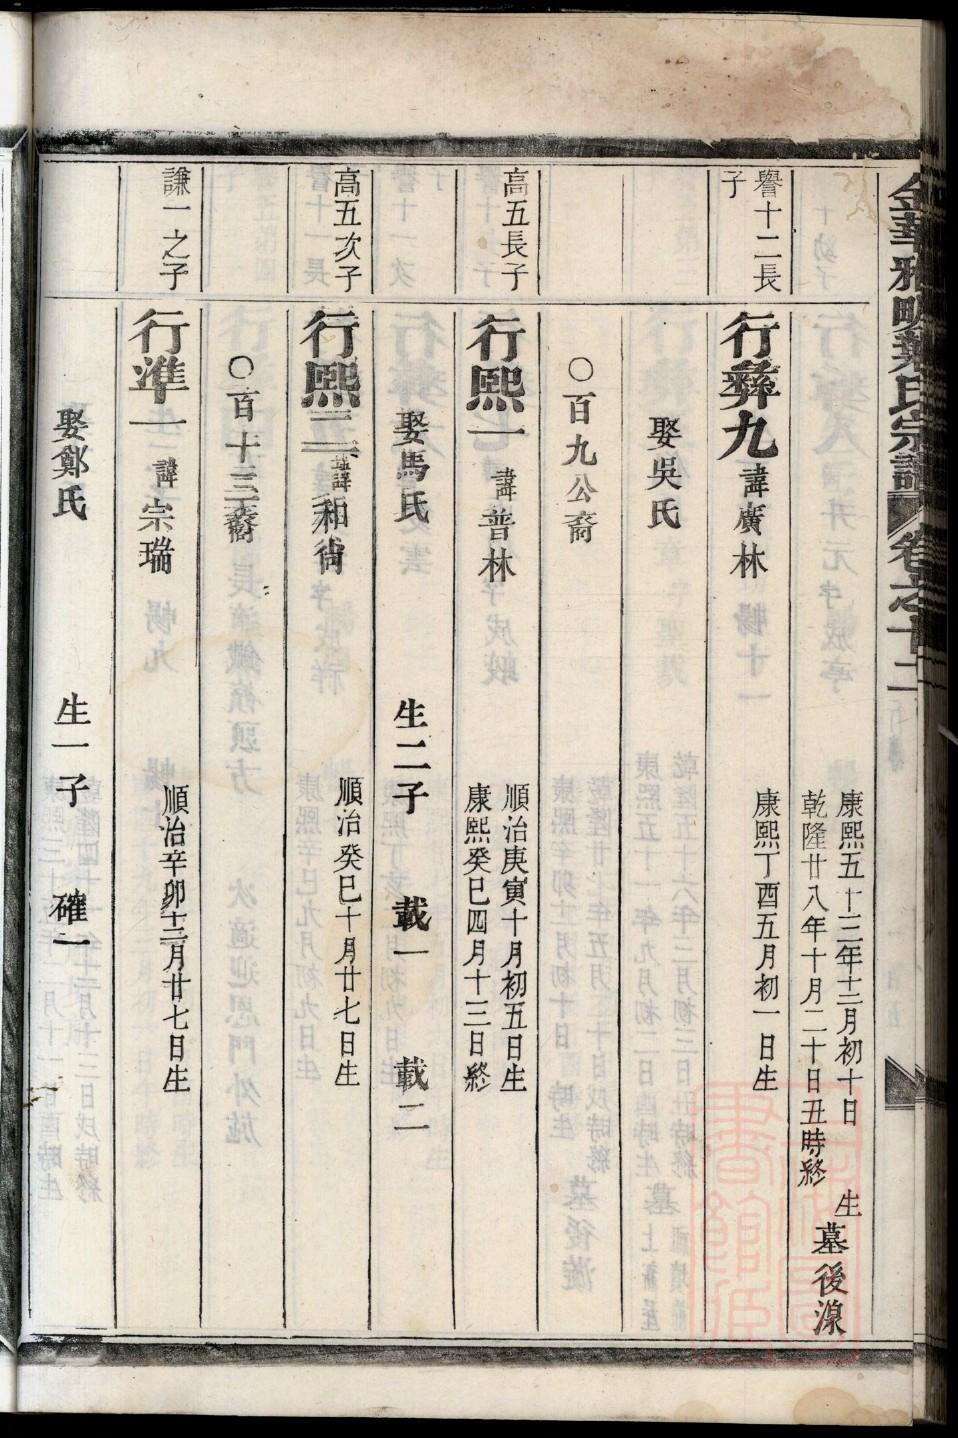 金華雅畈鄭氏宗譜 卷之十二
康熙五十二年十二月初十日 生
乾隆廿八年十月二十日丑時終 墓後湶
譽十二長子
行彝九 諱廣林
康熙丁酉五月初一日生
娶吳氏
○百九公裔
高五長子
行熙一 諱普林
順治庚寅十月初五日生
康熙癸巳四月十三日終
娶馬氏 生二子 載一 載二
高五次子
行熙二 諱和尚
順治癸巳十月廿七日生
○百十三裔
謙一之子
行準一 諱宗瑞
順治辛卯十二月廿七日生
娶鄭氏 生一子 確一